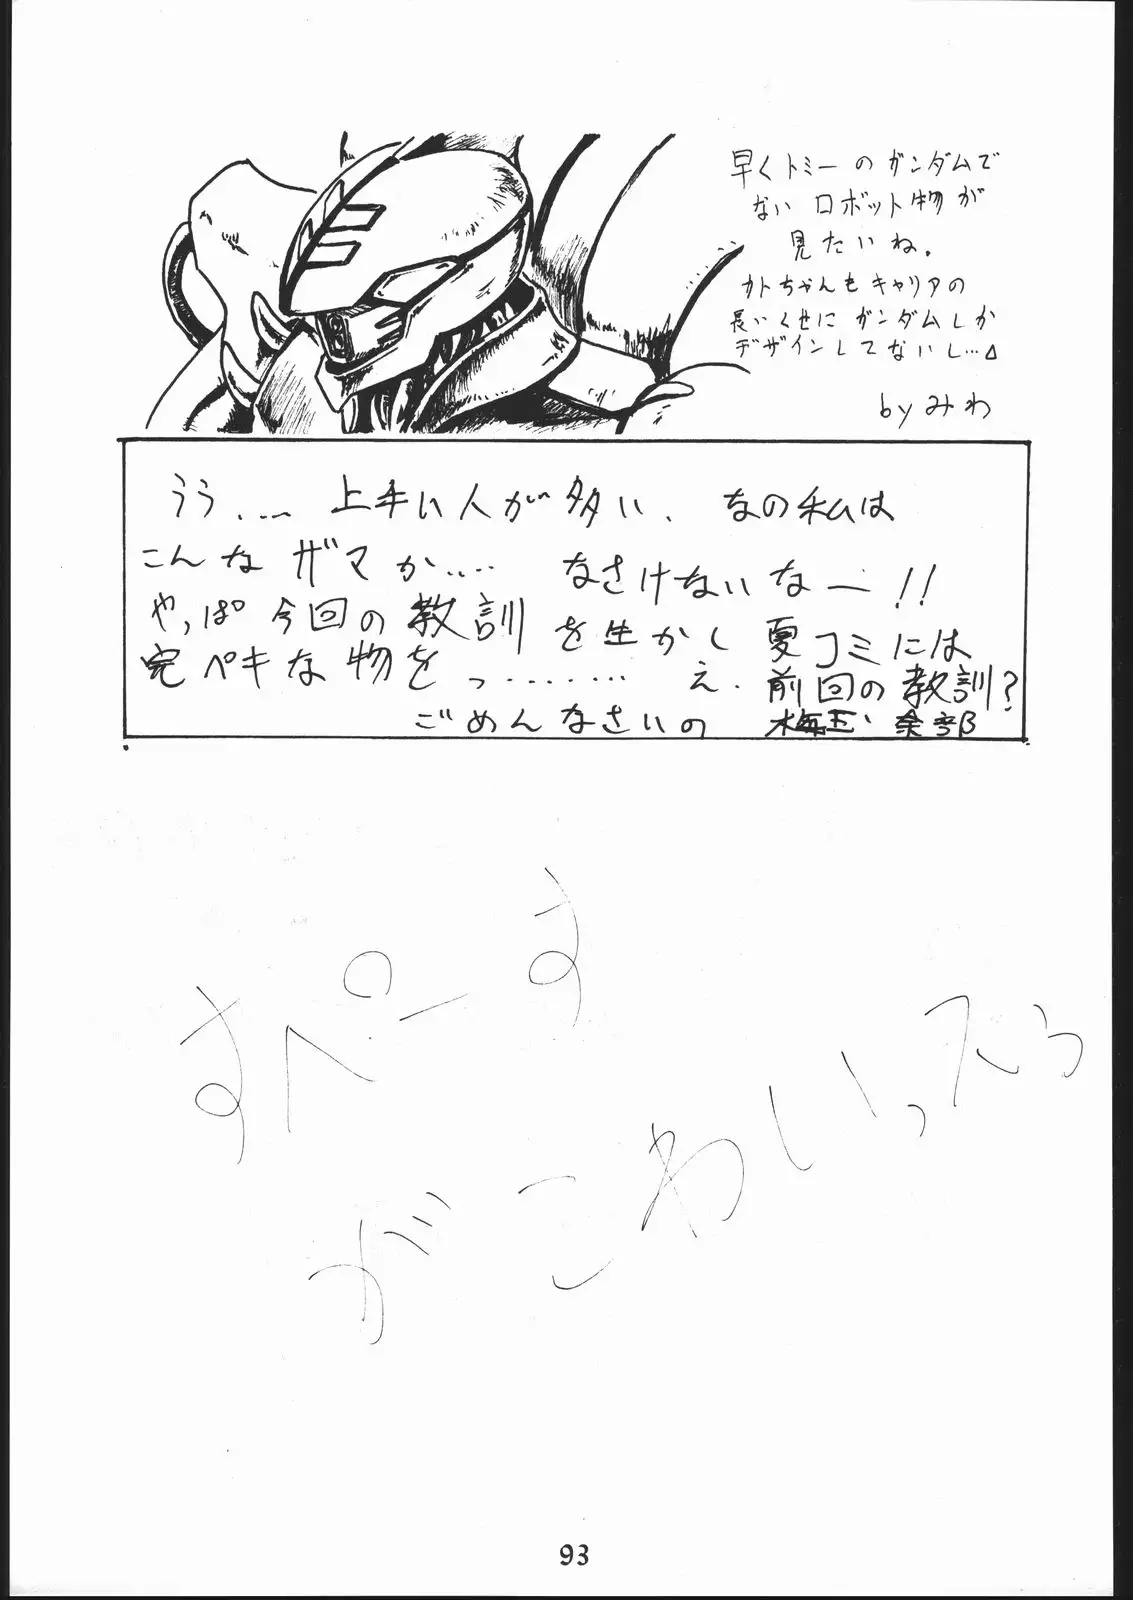 早くトミーのガンダムで
ない ロボット物が
見たいね.
カトちゃんもキャリアの
長いくせに ガンダムしか
デザインしてないし…
by みわ
うぅ.... 上手い人が多い、なの私は
こんな ザマか..... なさけないなー!!
やっぱ今回の教訓を生かし 夏コミには
完ペキな物をっ......... え. 前回の教訓?
ごめんなさいの
すぺーす
がこわいってう
93